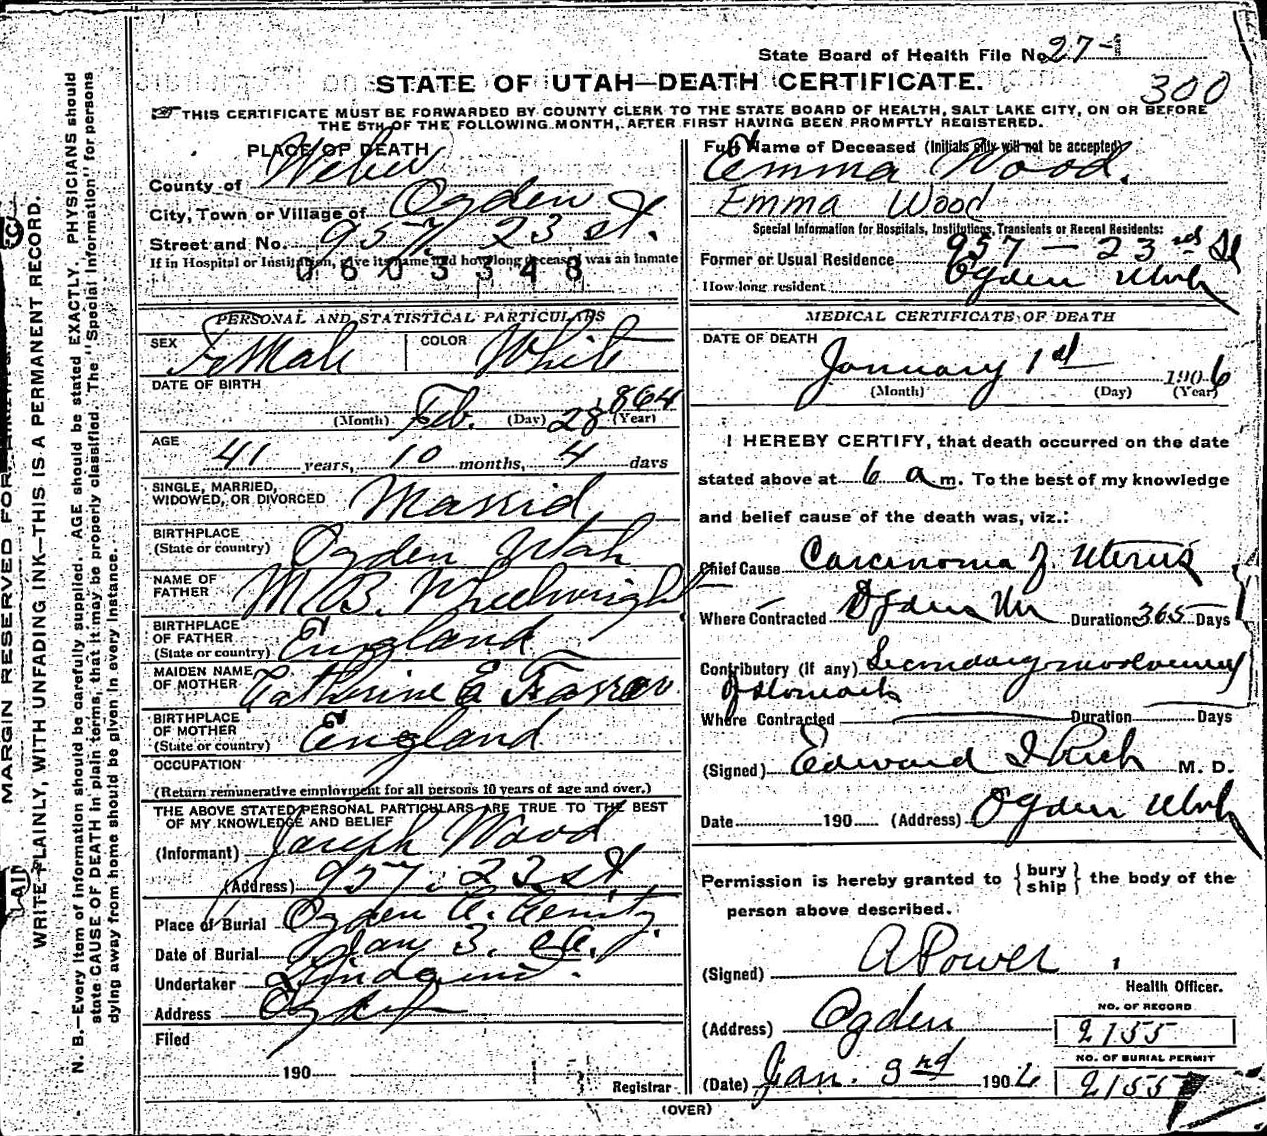 State Board of Health File No. 27-
300
STATE OF UTAH—DEATH CERTIFICATE.
THIS CERTIFICATE MUST BE FORWARDED BY COUNTY CLERK TO THE STATE BOARD OF HEALTH, SALT LAKE CITY, ON OR BEFORE
THE 5TH OF THE FOLLOWING MONTH, AFTER FIRST HAVING BEEN PROMPTLY REGISTERED.
PLACE OF DEATH
County of Weber
City, Town or Village of Ogden
Street and No. 957. 23 st.
If in Hospital or Institution, give its name and how long deceased was an inmate
0603348
Full Name of Deceased (Initials only will not be accepted)
Emma Wood.
Emma Wood
Special Information for Hospitals, Institutions, Transients or Recent Residents:
Former or Usual Residence 957 — 23rd St
How long resident Ogden Utah
PERSONAL AND STATISTICAL PARTICULARS
SEX Female COLOR White
DATE OF BIRTH
(Month) Feb. (Day) 28 864 (Year)
AGE 41 years, 10 months, 4 days
SINGLE, MARRIED,
WIDOWED, OR DIVORCED Married
BIRTHPLACE
(State or country) Ogden Utah
NAME OF
FATHER M. B. Wheelwright
BIRTHPLACE
OF FATHER
(State or country) England
MAIDEN NAME
OF MOTHER Catherine E
BIRTHPLACE
OF MOTHER
(State or country) England
OCCUPATION
(Return remunerative employment for all persons 10 years of age and over.)
THE ABOVE STATED PERSONAL PARTICULARS ARE TRUE TO THE BEST
OF MY KNOWLEDGE AND BELIEF
(Informant) Joseph Wood
(Address) 957. 23 st.
Place of Burial Ogden
Date of Burial Jan 3.
Undertaker Lindquist.
Address Ogden
Filed
190
Registrar
MEDICAL CERTIFICATE OF DEATH
DATE OF DEATH
January 1st 1906
(Month) (Day) (Year)
I HEREBY CERTIFY, that death occurred on the date
stated above at 6 a m. To the best of my knowledge
and belief cause of the death was, viz.:
Chief Cause Carcinoma of Uterus
Where Contracted Ogden Duration 365 Days
Contributory (if any) Secondary involvement
of stomach
Where Contracted Duration Days
(Signed) Edward I Rich M. D.
Date 190 (Address) Ogden Utah
Permission is hereby granted to { bury ship } the body of the
person above described.
(Signed) A Power
Health Officer.
(Address) Ogden
NO. OF RECORD
2155
(Date) Jan. 3rd 1906
NO. OF BURIAL PERMIT
2155
(OVER)
MARGIN RESERVED FOR
WRITE PLAINLY, WITH UNFADING INK—THIS IS A PERMANENT RECORD.
N. B.—Every item of information should be carefully supplied. AGE should be stated EXACTLY. PHYSICIANS should
state CAUSE OF DEATH in plain terms, that it may be properly classified. The "Special Information" for persons
dying away from home should be given in every instance.